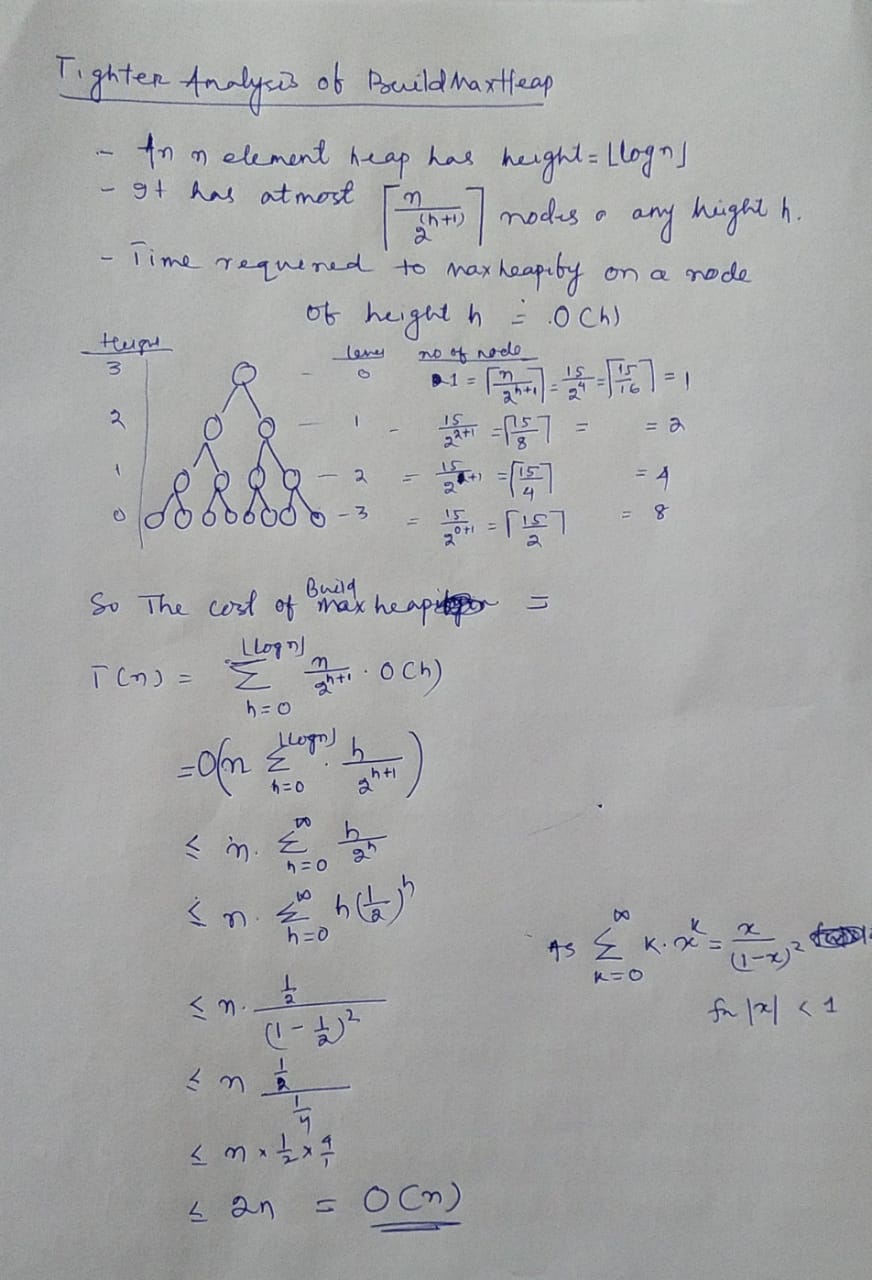 Tighter Analysis of BuildMaxHeap
- An n element heap has height = ⌊logn⌋
- It has atmost ⌈n/2^(h+1)⌉ nodes o any height h.
- Time requered to maxheapify on a node
of height h = O(h)
Height level no of node
3 0 1 = ⌈n/2^(h+1)⌉ = 15/2^4 = ⌈15/16⌉ = 1
2 - 1 - 15/2^(2+1) = ⌈15/8⌉ = = 2
1 - 2 = 15/2^(1+1) = ⌈15/4⌉ = 4
0 - 3 = 15/2^(0+1) = ⌈15/2⌉ = 8
So The cost of Build max heap =
T(n) = ∑_{h=0}^{⌊logn⌋} n/2^(h+1) · O(h)
= O(n ∑_{h=0}^{⌊logn⌋} · h/2^(h+1))
≤ n. ∑_{h=0}^{∞} h/2^h
≤ n. ∑_{h=0}^{∞} h(1/2)^h
As ∑_{k=0}^{∞} k·x^k = x/(1-x)^2
for |x| < 1
≤ n. (1/2)/(1-1/2)^2
≤ n (1/2)/(1/4)
≤ n × 1/2 × 4/1
≤ 2n = O(n)